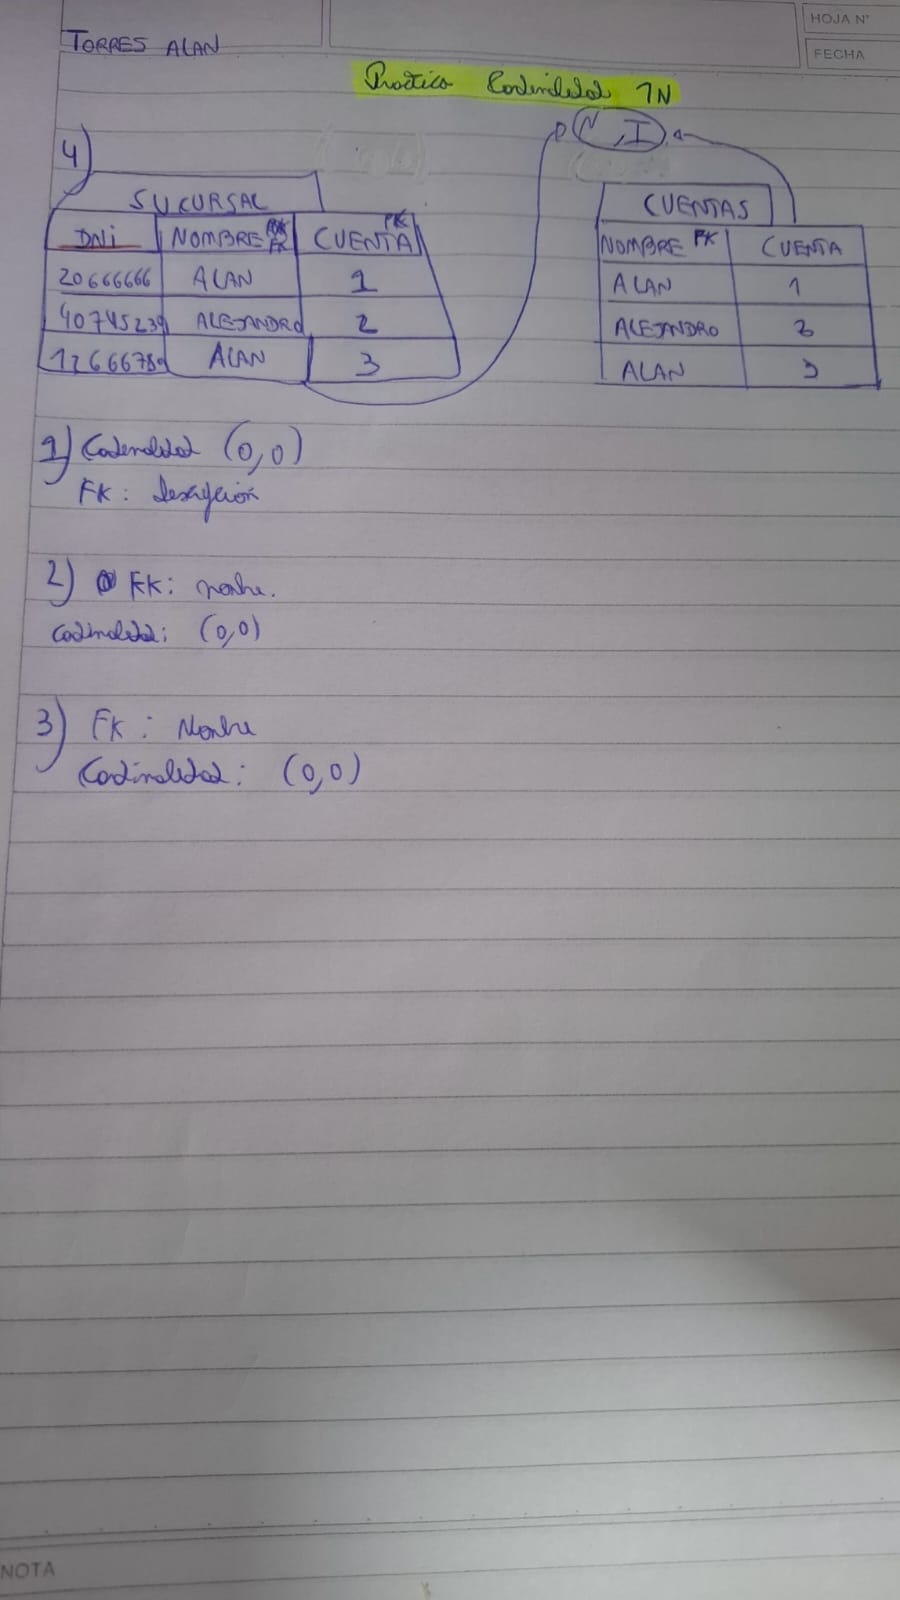 HOJA N°
FECHA
TORRES ALAN
Practico Cardinalidad 1N
N, I
4)
SUCURSAL
DNI NOMBRE FK CUENTA PK
20666666 ALAN 1
40745239 ALEJANDRO 2
12666789 ALAN 3
CUENTAS
NOMBRE PK CUENTA
ALAN 1
ALEJANDRO 2
ALAN 3
1) Cardinalidad (0,0)
FK: Descripción
2) FK: nombre.
Cardinalidad: (0,0)
3) FK: Nombre
Cardinalidad: (0,0)
NOTA